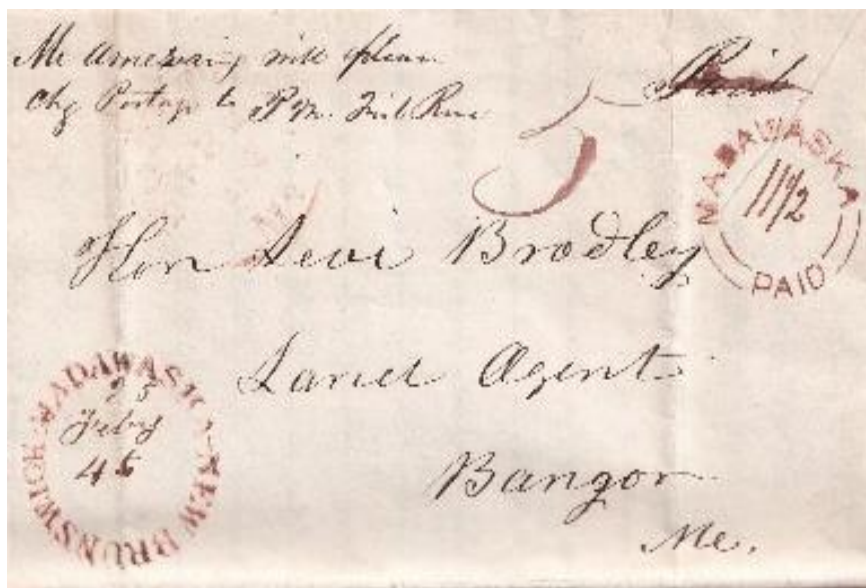 Mr Amerairy will please
Chg Postage to P M. Fish River
Paid
5
MADAWASKA
11 1/2
PAID
Hon Levi Bradley
Land Agent
Bangor
Me.
MADAWASKA NEW BRUNSWICK
25
Feby
45